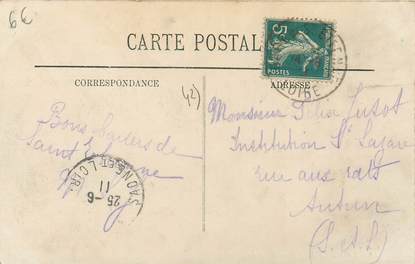 6€
CARTE POSTALE
5c
POSTES
LOIRE
CORRESPONDANCE
ADRESSE
42)
Bons baisers de
Saint Etienne
SAONE-ET-LOIRE
25-6
11
Monsieur Felix
Institution St Lazare
rue aux rats
Autun
(S.-et-L.)